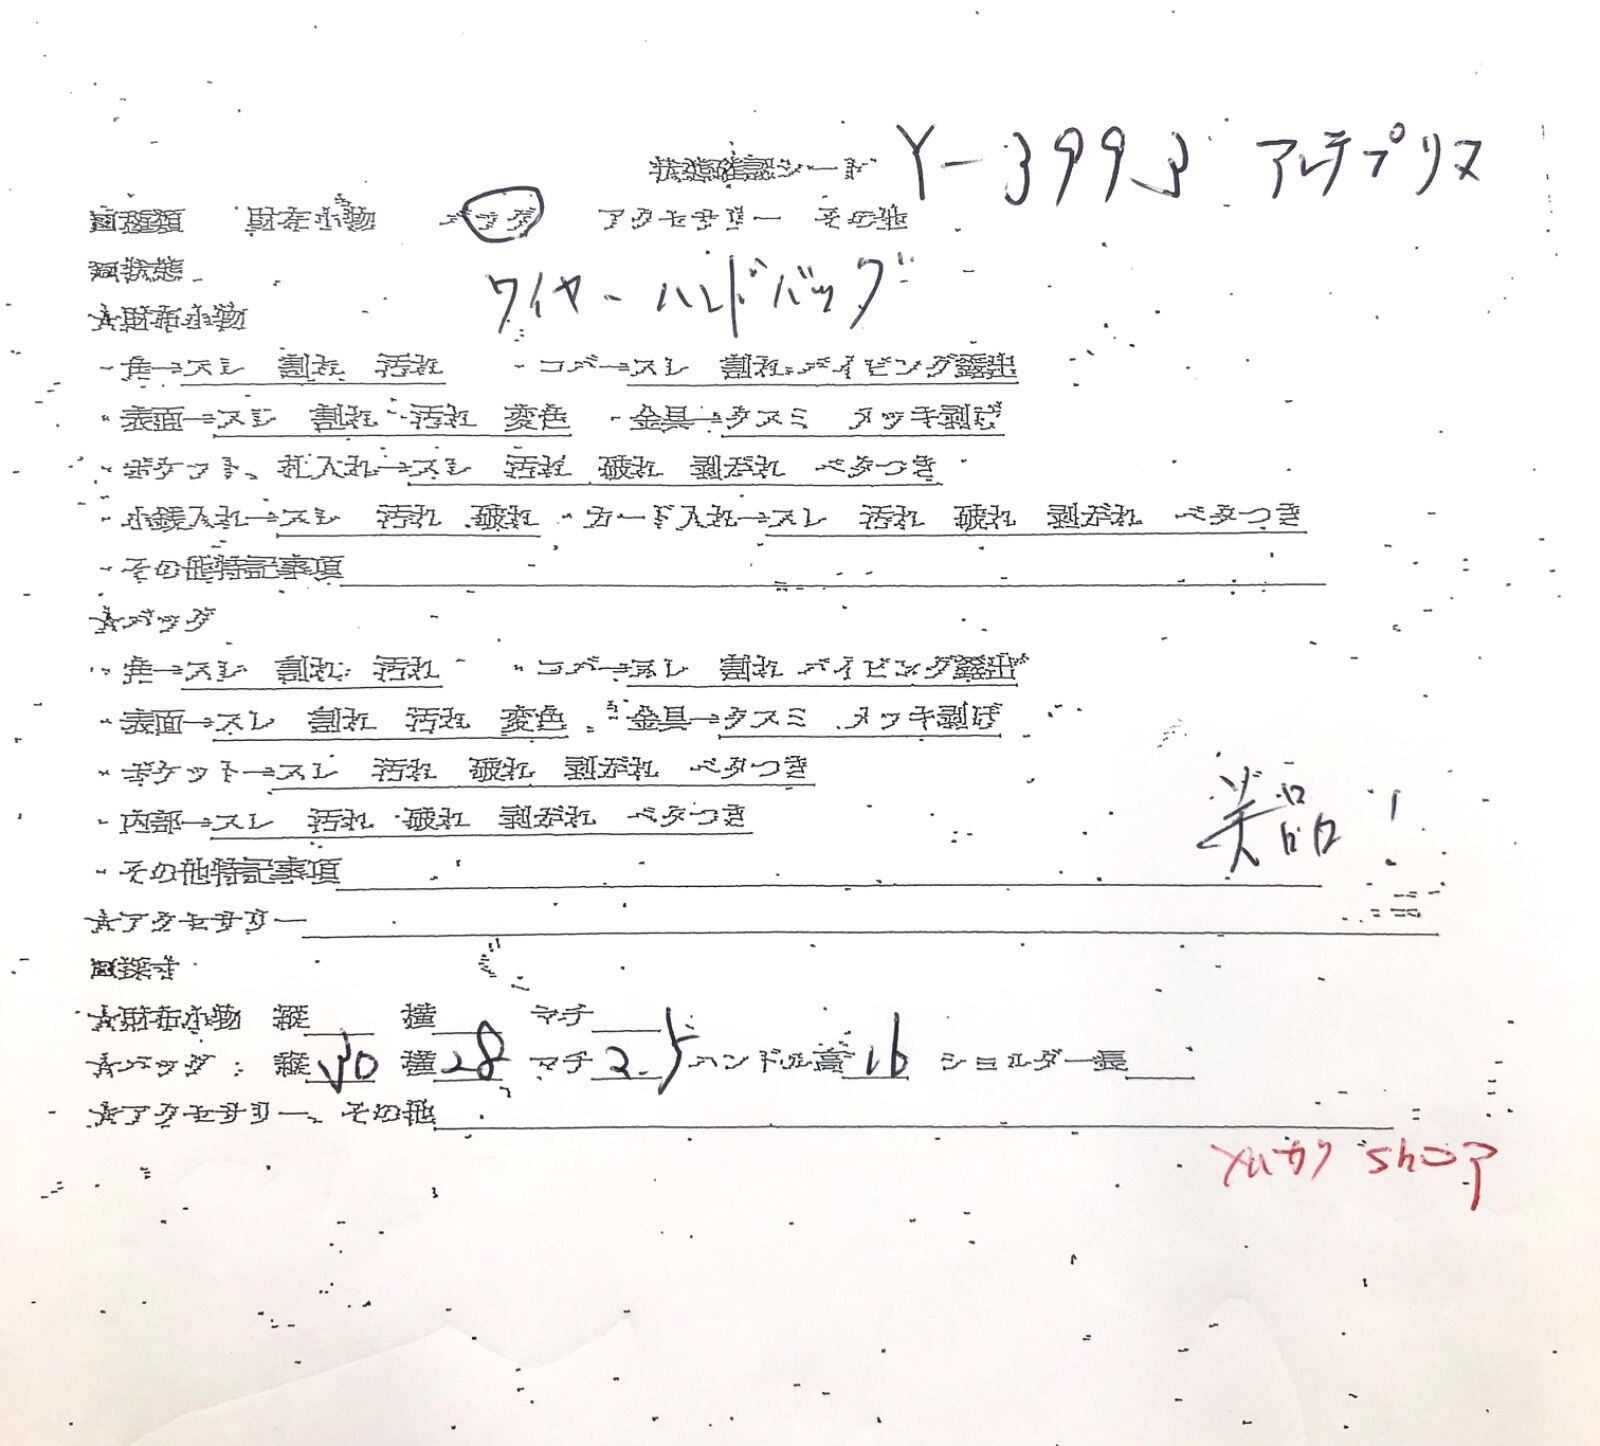 状態確認シート Y-3993 アルテプリヌ
□種類 財布小物 バッグ アクセサリー その他
□状態
ワイヤーハンドバッグ
☆財布小物
・角→スレ 割れ 汚れ ・コバ→スレ 割れ パイピング露出
・表面→スレ 割れ 汚れ 変色 ・金具→クスミ メッキ剥げ
・ポケット、札入れ→スレ 汚れ 破れ 剥がれ ベタつき
・小銭入れ→スレ 汚れ 破れ ・カード入れ→スレ 汚れ 破れ 剥がれ ベタつき
・その他特記事項
☆バッグ
・角→スレ 割れ 汚れ ・コバ→スレ 割れ パイピング露出
・表面→スレ 割れ 汚れ 変色 ・金具→クスミ メッキ剥げ
・ポケット→スレ 汚れ 破れ 剥がれ ベタつき
・内部→スレ 汚れ 破れ 剥がれ ベタつき
美品!
・その他特記事項
☆アクセサリー
□採寸
☆財布小物 縦 横 マチ
☆バッグ: 縦30 横28 マチ2.5 ハンドル高16 ショルダー長
☆アクセサリー、その他
shop